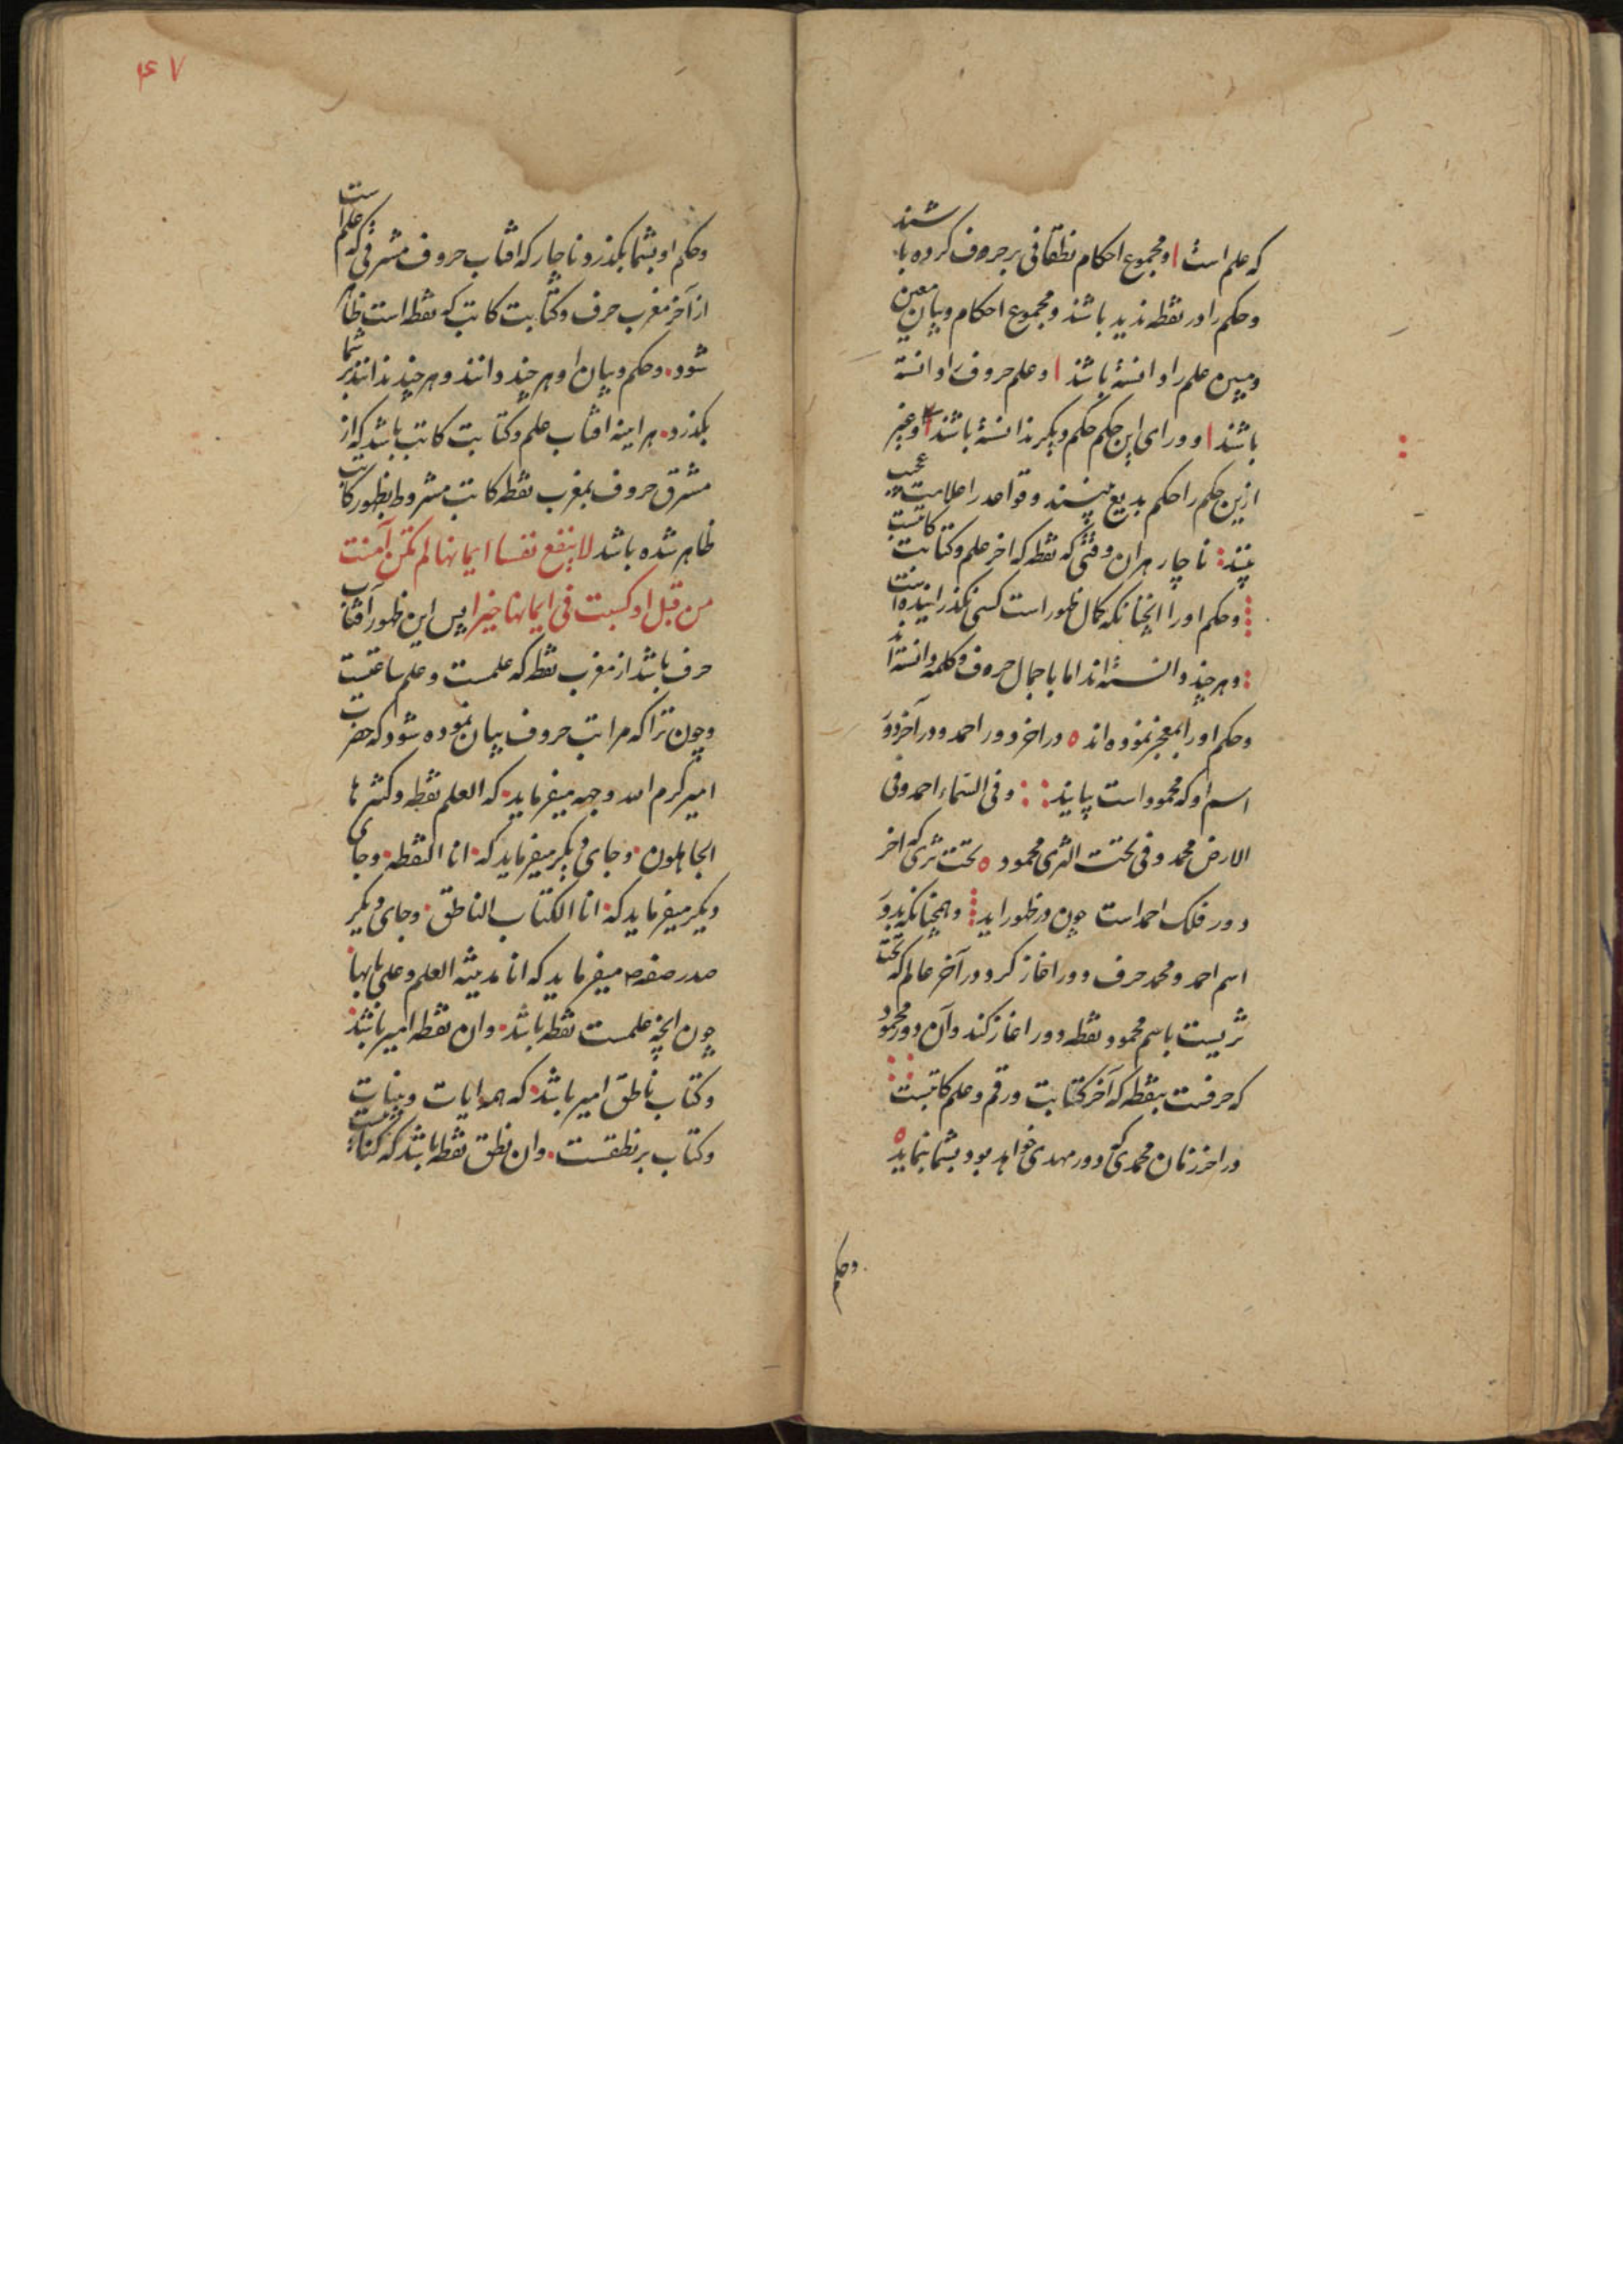 که علم است و مجموع احکام نطقانی بر حروف کرده باشند
و حکم را در نقطه ندید باشند و مجموع احکام و بیان معین
و مبین علم را دانسته باشند و علم حروف را دانسته
باشند و ورای این حکم حکم دیکر ندانسته باشند و غیر
ازین حکم را حکم بدیع نبینند و قواعد را علامت عجیب
نبینند ناچار هر ان وقتی که نقطه که اخر علم و کتابت کاتبست
و حکم او را انچنانکه کمال ظهور است کسی نکذرانیده است
و هر چند دانسته اند اما باجمال حروف و کلمه دانسته اند
و حکم او را بمعجز نموده اند در اخر دور احمد و در آخر دور
اسم او که محمود است بیاید و فی السماء احمد و فی
الارض محمد و فی تحت الثری محمود تحت ثری که اخر
دور فلک احمد است چون در ظهور اید و همچنانکه بدور
اسم احمد و محمد حرف دور اغاز کرد و در آخر عالم که تحت
ثریست باسم محمود نقطه دور اغاز کند و آن دور محمود
که حرفست بنقطه که آخر کتابت و رقم و علم کاتبست
در اخر زمان محمدی که دور مهدی خواهد بود بشما بنماید
و حکم
۴۷
و حکم او بشما بکذرد ناچار که افتاب حروف مشرقی که علم است
از آخر مغرب حرف و کتابت کاتب که نقطه است ظاهر
شود و حکم و بیان او هر چند دانند و هر چند ندانند بر شما
بکذرد هر اینه افتاب علم و کتابت کاتب باشد که از
مشرق حروف بمغرب نقطه کاتب مشروط بظهور کاتب
ظاهر شده باشد لا ینفع نفسا ایمانها لم تکن آمنت
من قبل او کسبت فی ایمانها خیرا پس این ظهور آفتاب
حرف باشد از مغرب نقطه که علمست و علم ساعتست
و چون ترا که مراتب حروف بیان نموده شود که حضرت
امیر کرم الله وجهه میفرماید که العلم نقطه و کثرها
الجاهلون و جای دیکر میفرماید که انا النقطه و جای
دیکر میفرماید که انا الکتاب الناطق و جای دیکر
صدر صفه میفرماید که انا مدینه العلم و علی بابها
چون انچه علمست نقطه باشد و ان نقطه امیر باشد
و کتاب ناطق امیر باشد که همه ایات و بینات
و کتاب بر نطقست و ان نطق نقطه باشد که کتابتست